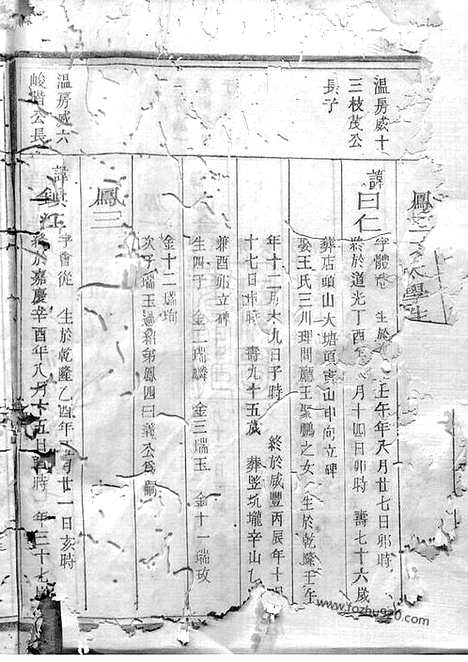 鳳二 太學生
溫房威十
三枝茂公
長子
諱曰仁
字體 生於 壬午年八月廿七日卯時
終於道光丁酉 月十四日卯時 壽七十六歲
葬店頭山大塘頭 山申向立碑
娶王氏三川理問廳王聚鵬之女 生於乾隆壬午
年十二月初九日子時 終於咸豐丙辰年十
十七日申時 壽九十五歲 葬竪坑壠辛山
兼酉卯立碑
生四子 金二瑞麟 金三瑞玉 金十一瑞玫
金十二瑞珣
次子瑞玉 鳳四曰義公為嗣
鳳三
溫房威六
峻階公長
諱
字會從 生於乾隆乙酉年 月廿一日亥時
終於嘉慶辛酉年八月十五日 時 年三十七歲
www.fozhu920.com